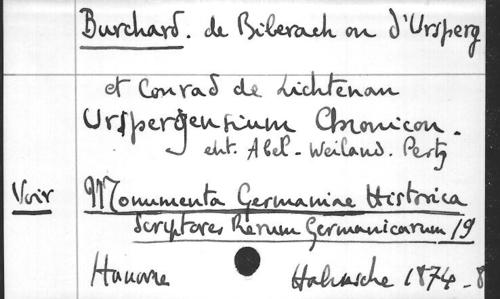 Burchard. de Biberach ou d'Ursperg
et Conrad de Lichtenau
Urspergensium Chronicon.
edt. Abel - Weiland. Pertz
Voir Monumenta Germaniae Historica
Scriptores Rerum Germanicarum 19
Hanovre Hahnsche 1874 - 8